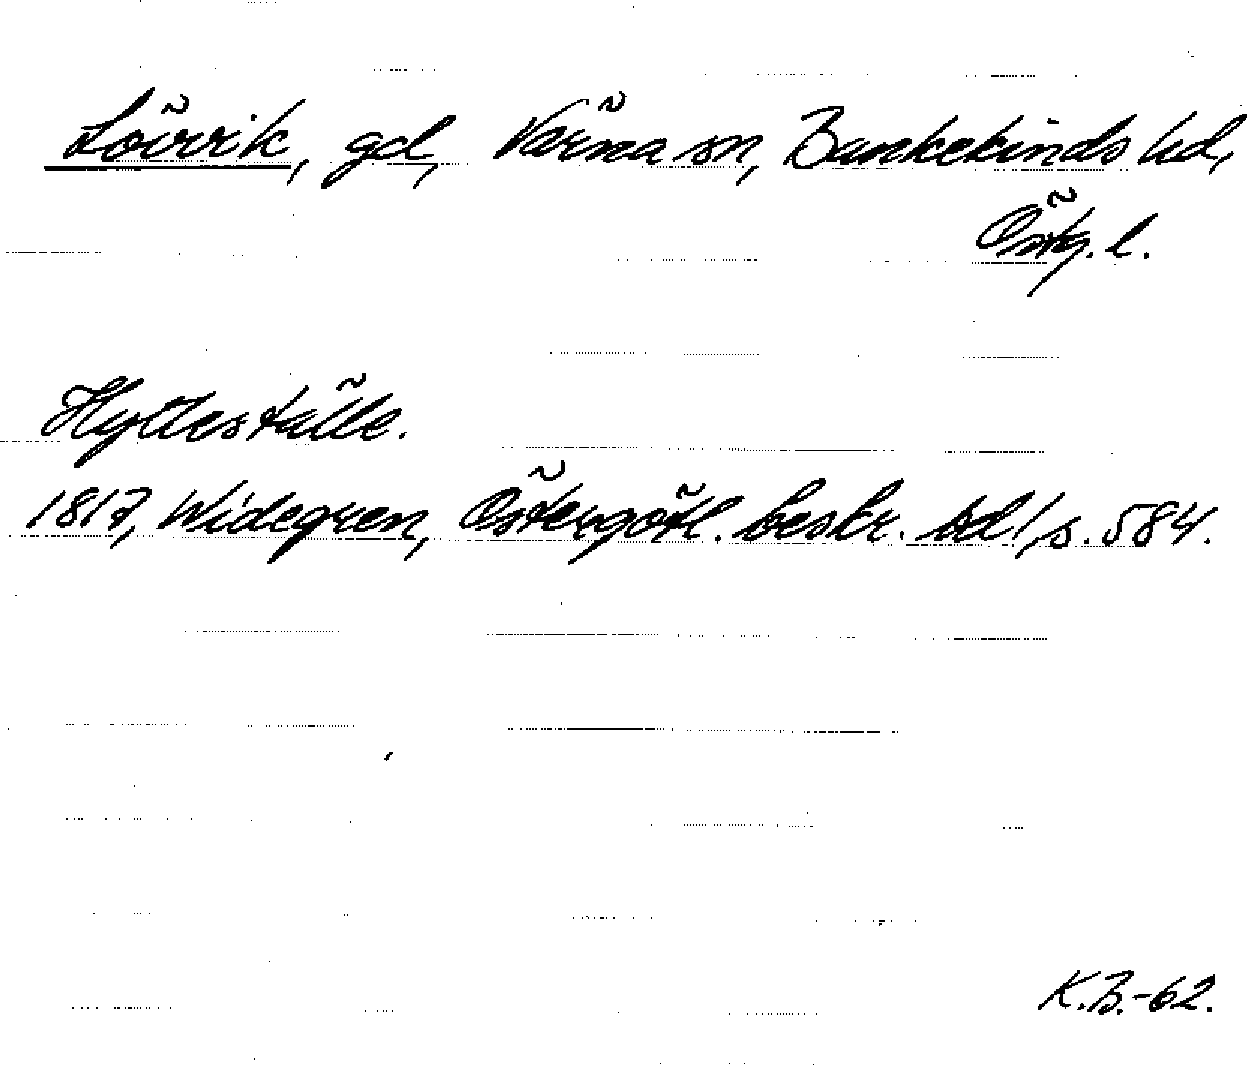 Lövvik, gd, Värna sn, Bankekinds hd,
Östg. l.
Hylleställe.
1817, Widegren, Östergötl. beskr. bd 1, s. 584.
K.B.-62.